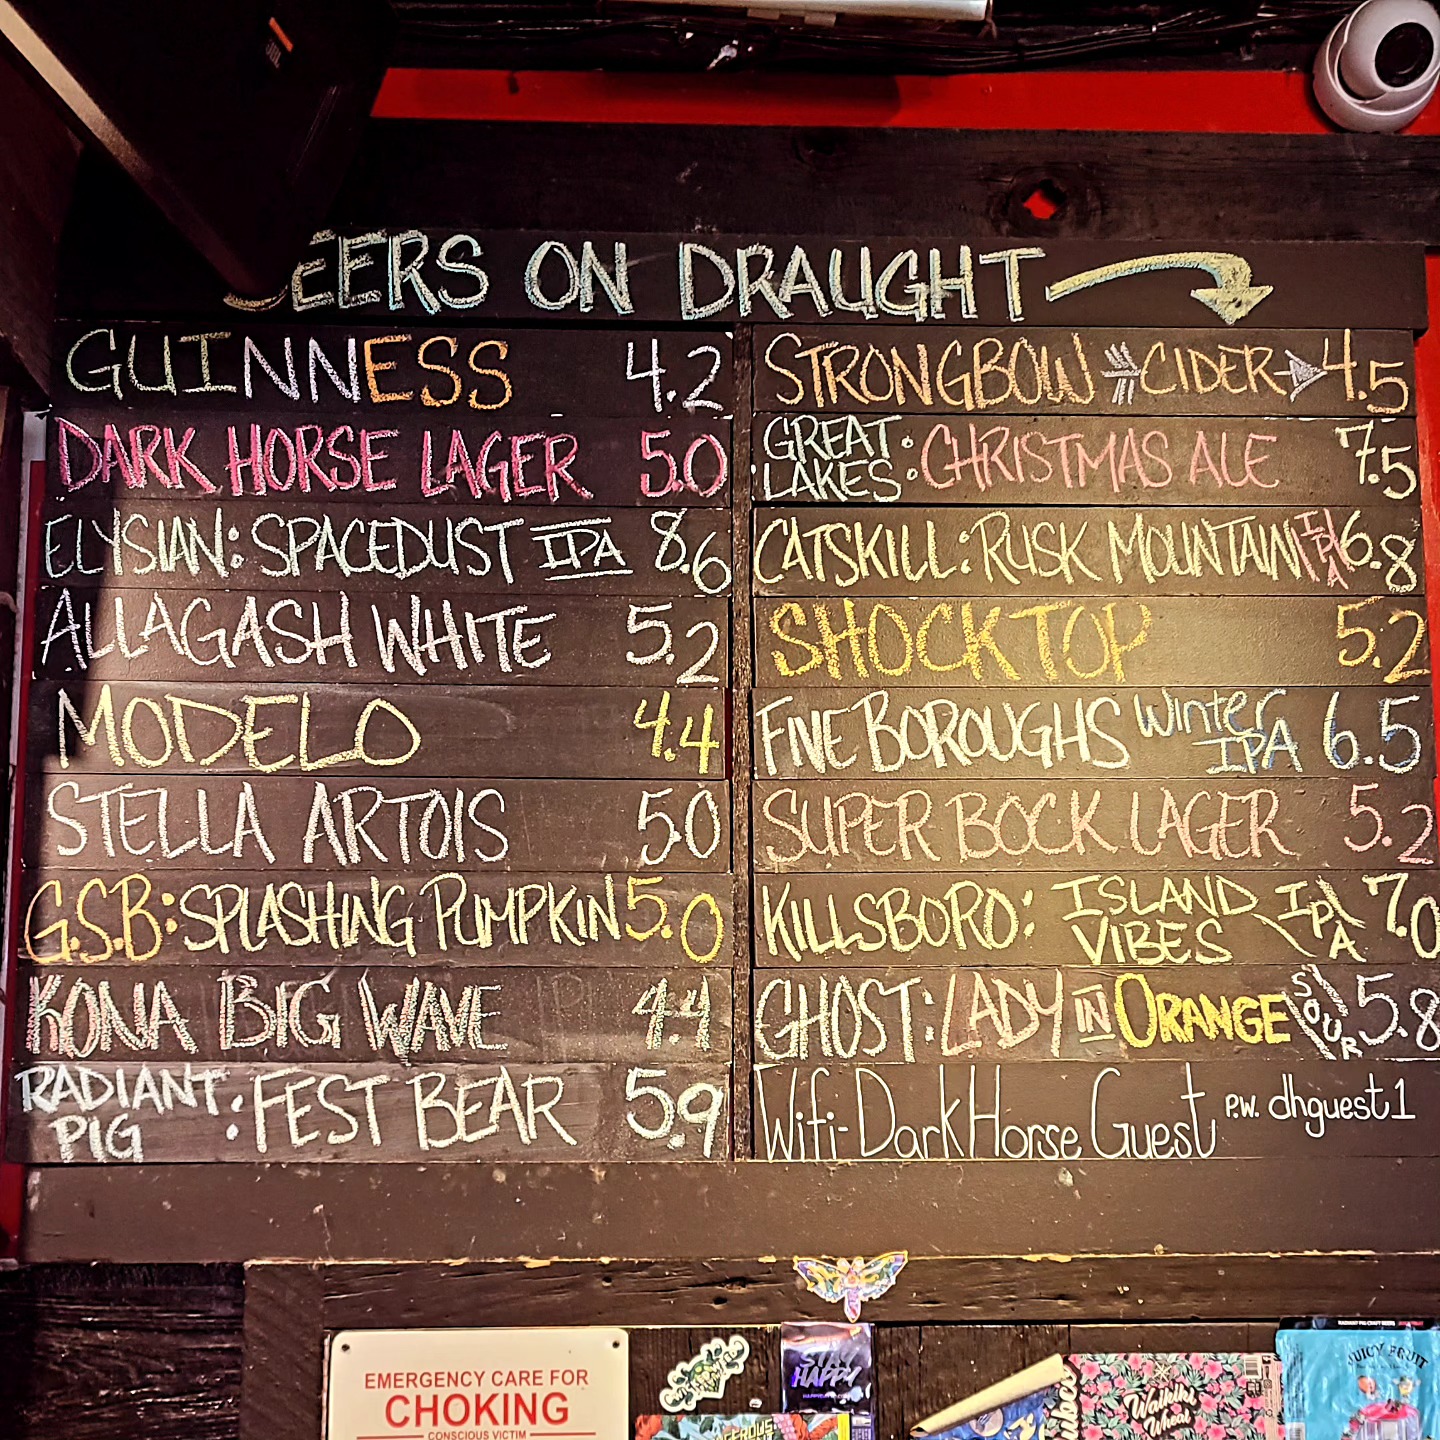 EERS ON DRAUGHT
GUINNESS 4.2
DARK HORSE LAGER 5.0
ELYSIAN: SPACEDUST IPA 8.6
ALLAGASH WHITE 5.2
MODELO 4.4
STELLA ARTOIS 5.0
G.S.B: SPLASHING PUMPKIN 5.0
KONA BIG WAVE 4.4
RADIANT PIG : FEST BEAR 5.9
STRONGBOW CIDER 4.5
GREAT LAKES: CHRISTMAS ALE 7.5
CATSKILL: RUSK MOUNTAIN IPA 6.8
SHOCKTOP 5.2
FIVE BOROUGHS Winter IPA 6.5
SUPER BOCK LAGER 5.2
KILLSBORO: ISLAND VIBES IPA 7.0
GHOST: LADY IN ORANGE SOUR 5.8
Wifi- DarkHorse Guest P.W. dhguest1
EMERGENCY CARE FOR
CHOKING
CONSCIOUS VICTIM
STAY
HAPPY
Waikiki
Wheat
JUICY FRUIT
JBL